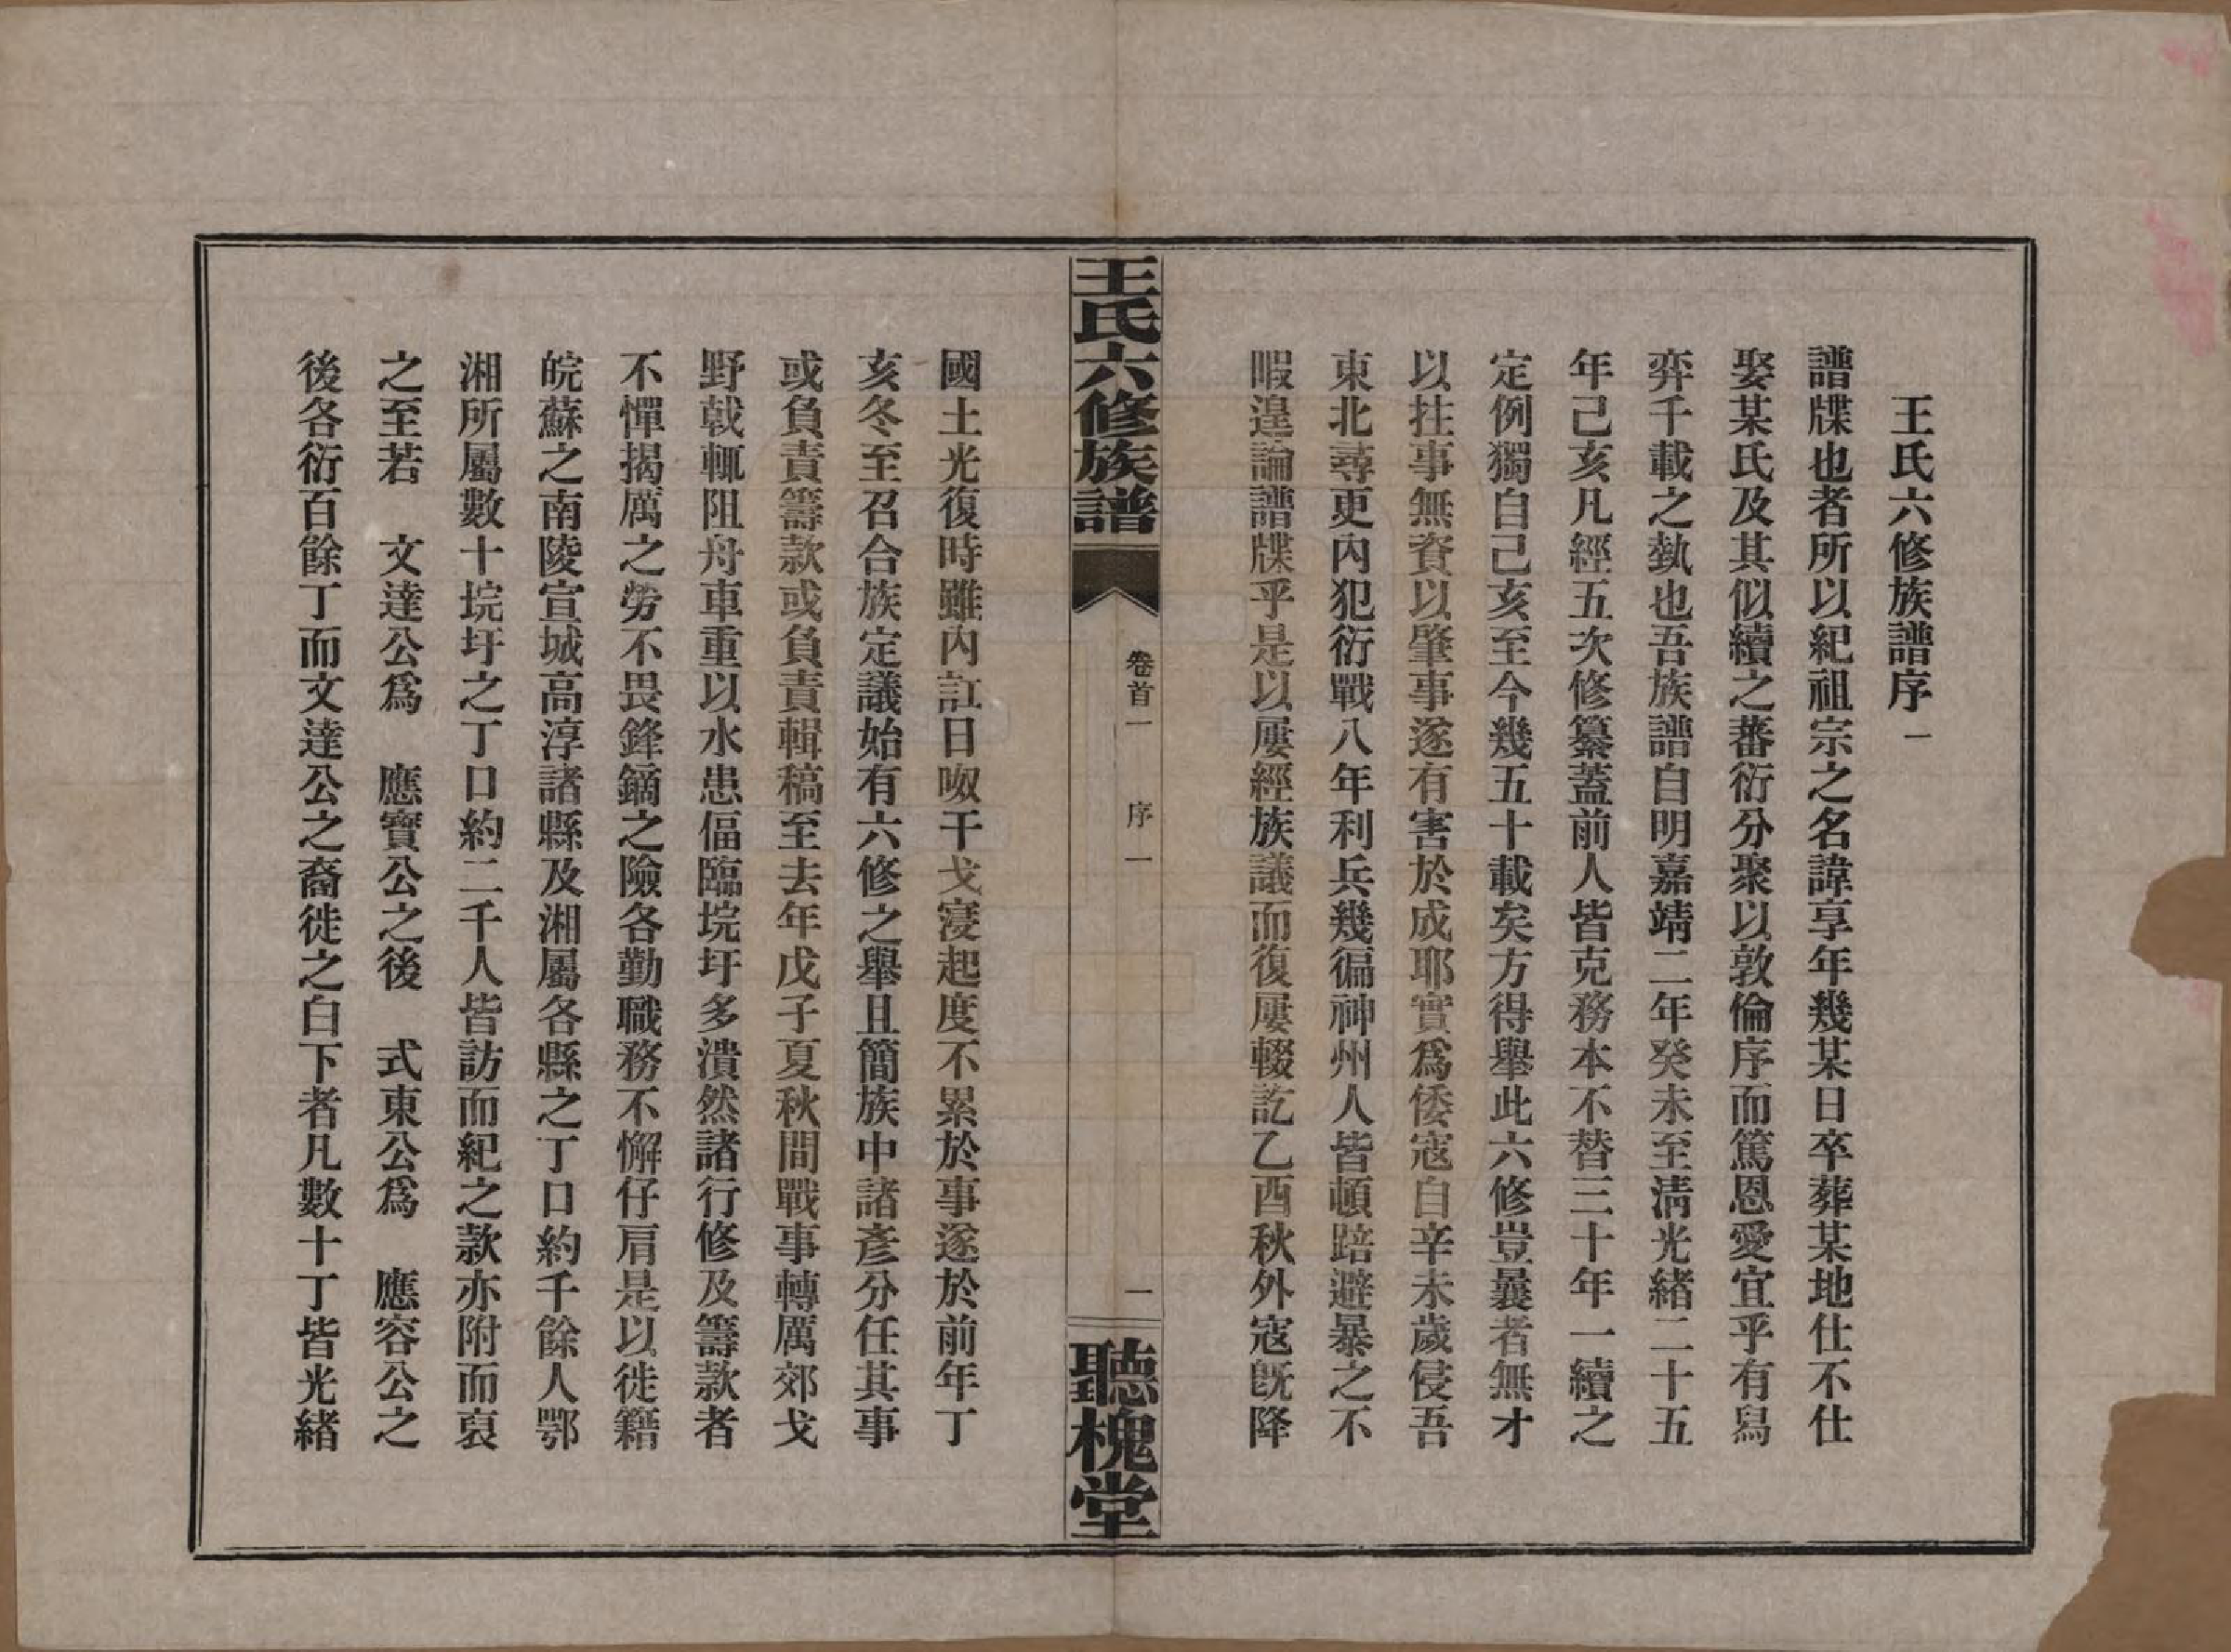 王氏六修族譜序一
譜牒也者所以紀祖宗之名諱享年幾某日卒葬某地仕不仕
娶某氏及其似續之蕃衍分聚以敦倫序而篤恩愛宜乎有舄
弈千載之埶也吾族譜自明嘉靖二年癸未至淸光緒二十五
年己亥凡經五次修纂蓋前人皆克務本不替三十年一續之
定例獨自己亥至今幾五十載矣方得舉此六修豈曩者無才
以拄事無資以肇事遂有害於成耶實爲倭寇自辛未歲侵吾
東北尋更內犯衍戰八年利兵幾徧神州人皆頓踣避暴之不
暇遑論譜牒乎是以屢經族議而復屢輟訖乙酉秋外寇旣降
王氏六修族譜
卷首一
序一
一
聽槐堂
國土光復時雖內訌日呶干戈寖起度不累於事遂於前年丁
亥冬至召合族定議始有六修之舉且簡族中諸彥分任其事
或負責籌款或負責輯稿至去年戊子夏秋間戰事轉厲郊戈
野戟輒阻舟車重以水患偪臨垸圩多潰然諸行修及籌款者
不憚揭厲之勞不畏鋒鏑之險各勤職務不懈仔肩是以徙籍
皖蘇之南陵宣城高淳諸縣及湘屬各縣之丁口約千餘人鄂
湘所屬數十垸圩之丁口約二千人皆訪而紀之款亦附而裒
之至若　文達公爲　應寶公之後　式東公爲　應容公之
後各衍百餘丁而文達公之裔徙之白下者凡數十丁皆光緒